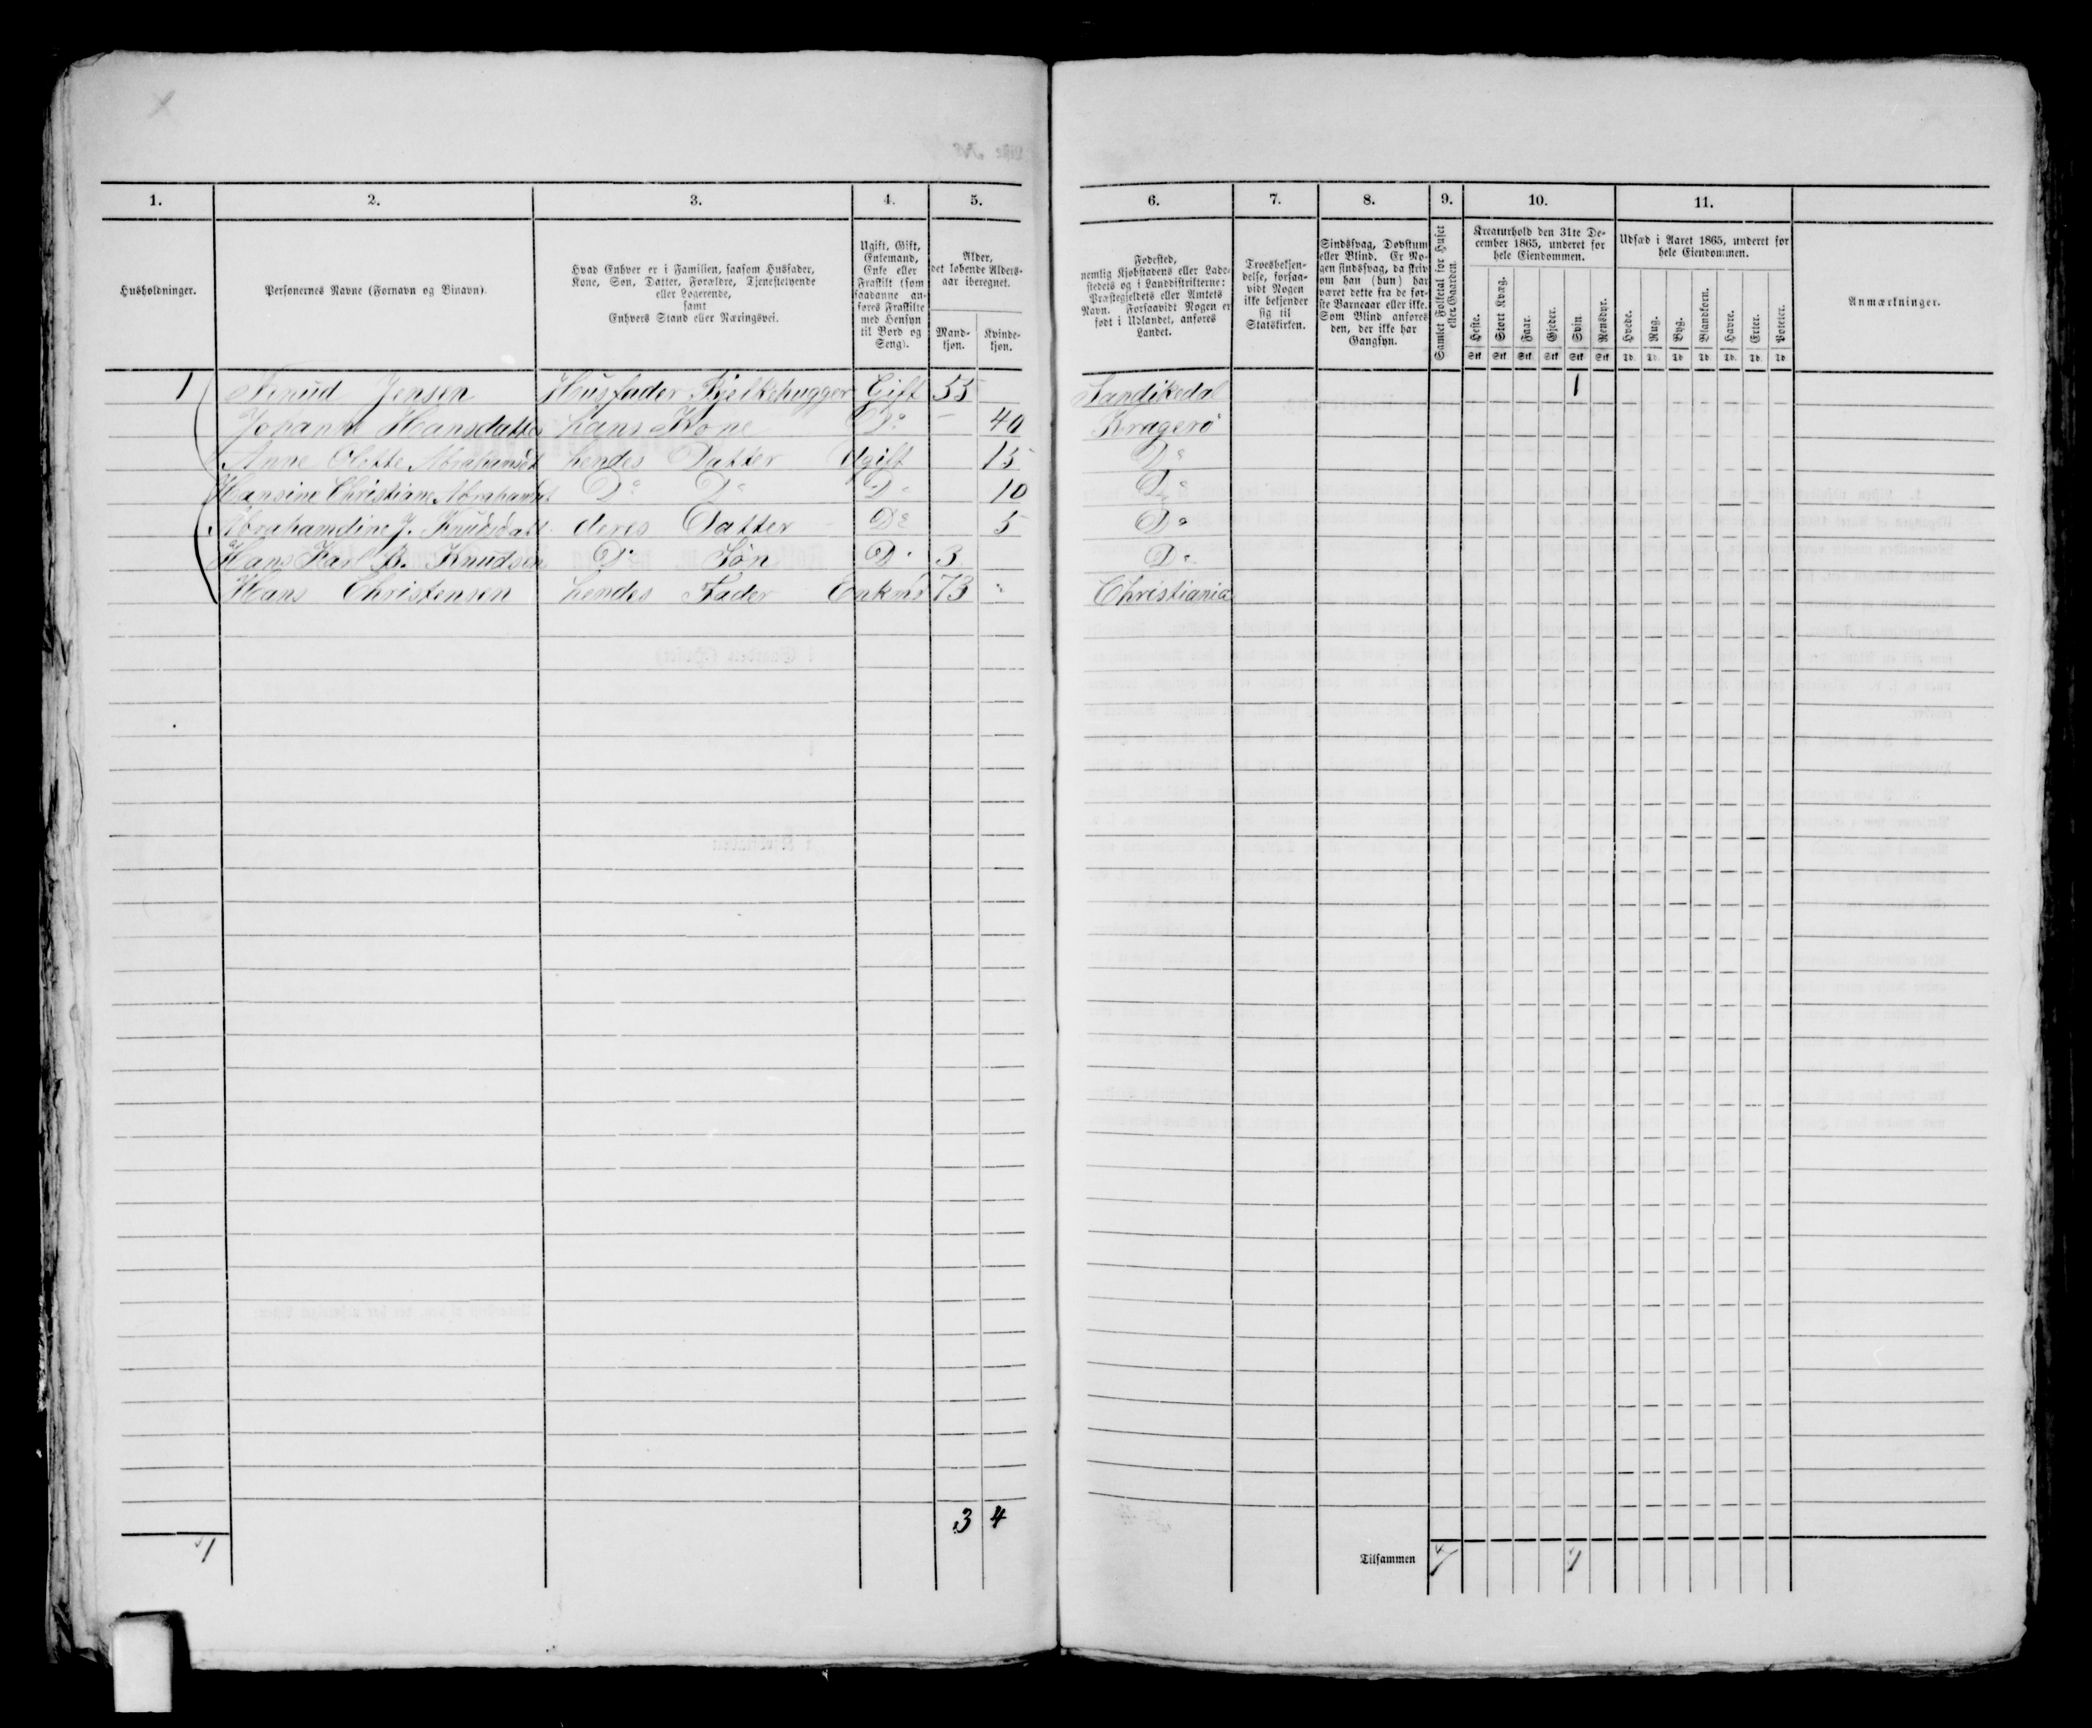 1. 2. 3. 4. 5. 6. 7. 8. 9. 10. 11.
Husholdninger.
Personernes Navne (Fornavn og Binavn).
Hvad Enhver er i Familien, saasom Husfader,
Kone, Søn, Datter, Forældre, Tjenestetyende
eller Logerende,
samt
Enhvers Stand eller Næringsvei.
Ugift, Gift,
Enkemand,
Enke eller
Fraskilt (som
saadanne an-
føres Fraskilte
med Hensyn
til Bord og
Seng).
Alder,
det løbende Alders-
aar iberegnet.
Mand-
kjøn.
Kvinde-
kjøn.
Fødested,
nemlig Kjøbstadens eller Lade-
stedets og i Landdistrikterne:
Præstegjeldets eller Amtets
Navn. Forsaavidt Nogen er
født i Udlandet, anføres
Landet.
Troesbekjen-
delse, forsaa-
vidt Nogen
ikke bekjender
sig til
Statskirken.
Sindssvag, Døvstum
eller Blind. Er No-
gen sindssvag, da skriv
om han (hun) har
været dette fra de før-
ste Barneaar eller ikke.
Som Blind anføres
den, der ikke har
Gangsyn.
Samlet Folketal for Huset
eller Gaarden.
Kreaturhold den 31te De-
cember 1865, underet for
hele Eiendommen.
Heste. Stort Kvæg. Faar. Gjeder. Svin. Rensdyr.
Stk Stk Stk Stk Stk Stk
Udsæd i Aaret 1865, underet for
hele Eiendommen.
Hvede. Rug. Byg. Blandkorn. Havre. Erter. Poteter.
Td. Td. Td Td. Td. Td. Td
Anmærkninger.
1 Knud Jensen Husfader Bjelkehugger Gift 55 Sandikedal 1
Johanne Hansdatter hans Kone Do - 40 Kragerø
Anne Olette Abrahamsdt hendes Datter Ugift 15 Do
Hansine Christiane Abrahamsdt Do Do Do 10 Do
Abrahamdine J. Knudsdatt. deres Datter Do 5 Do
Hans Karl B. Knudsen Do Søn Do 3 Do
Hans Christensen hendes Fader Enkmd 73 " Christiania
3 4
1 Tilsammen 7 1